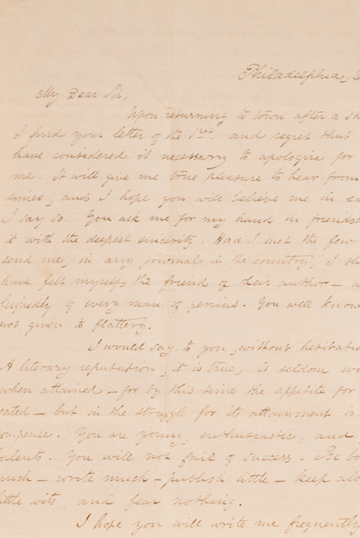 Philadelphia,
My Dear Sir,
Upon returning to town after a
I find your letter of the 1rst. and regret that
have considered it necessary to apologize for
me. It will give me true pleasure to hear from
times, and I hope you will believe me in
I say so. You ask me for my hand in friends
it with the deepest sincerity. Had I met the few
send me, in any journal in the country, I sh
have felt myself the friend of their author — a
feignedly of every man of genius. You well know
not given to flattery.
I would say to you, without hesitatio
A literary reputation, it is true, is seldom wo
when attained — for by this time the appetite for
sated — but in the struggle for its attainment is
compense. You are young, enthusiastic, and
talents. You will not fail of success. Be bo
much — write much — publish little — keep alo
little wits, and fear nothing.
I hope you will write me frequently